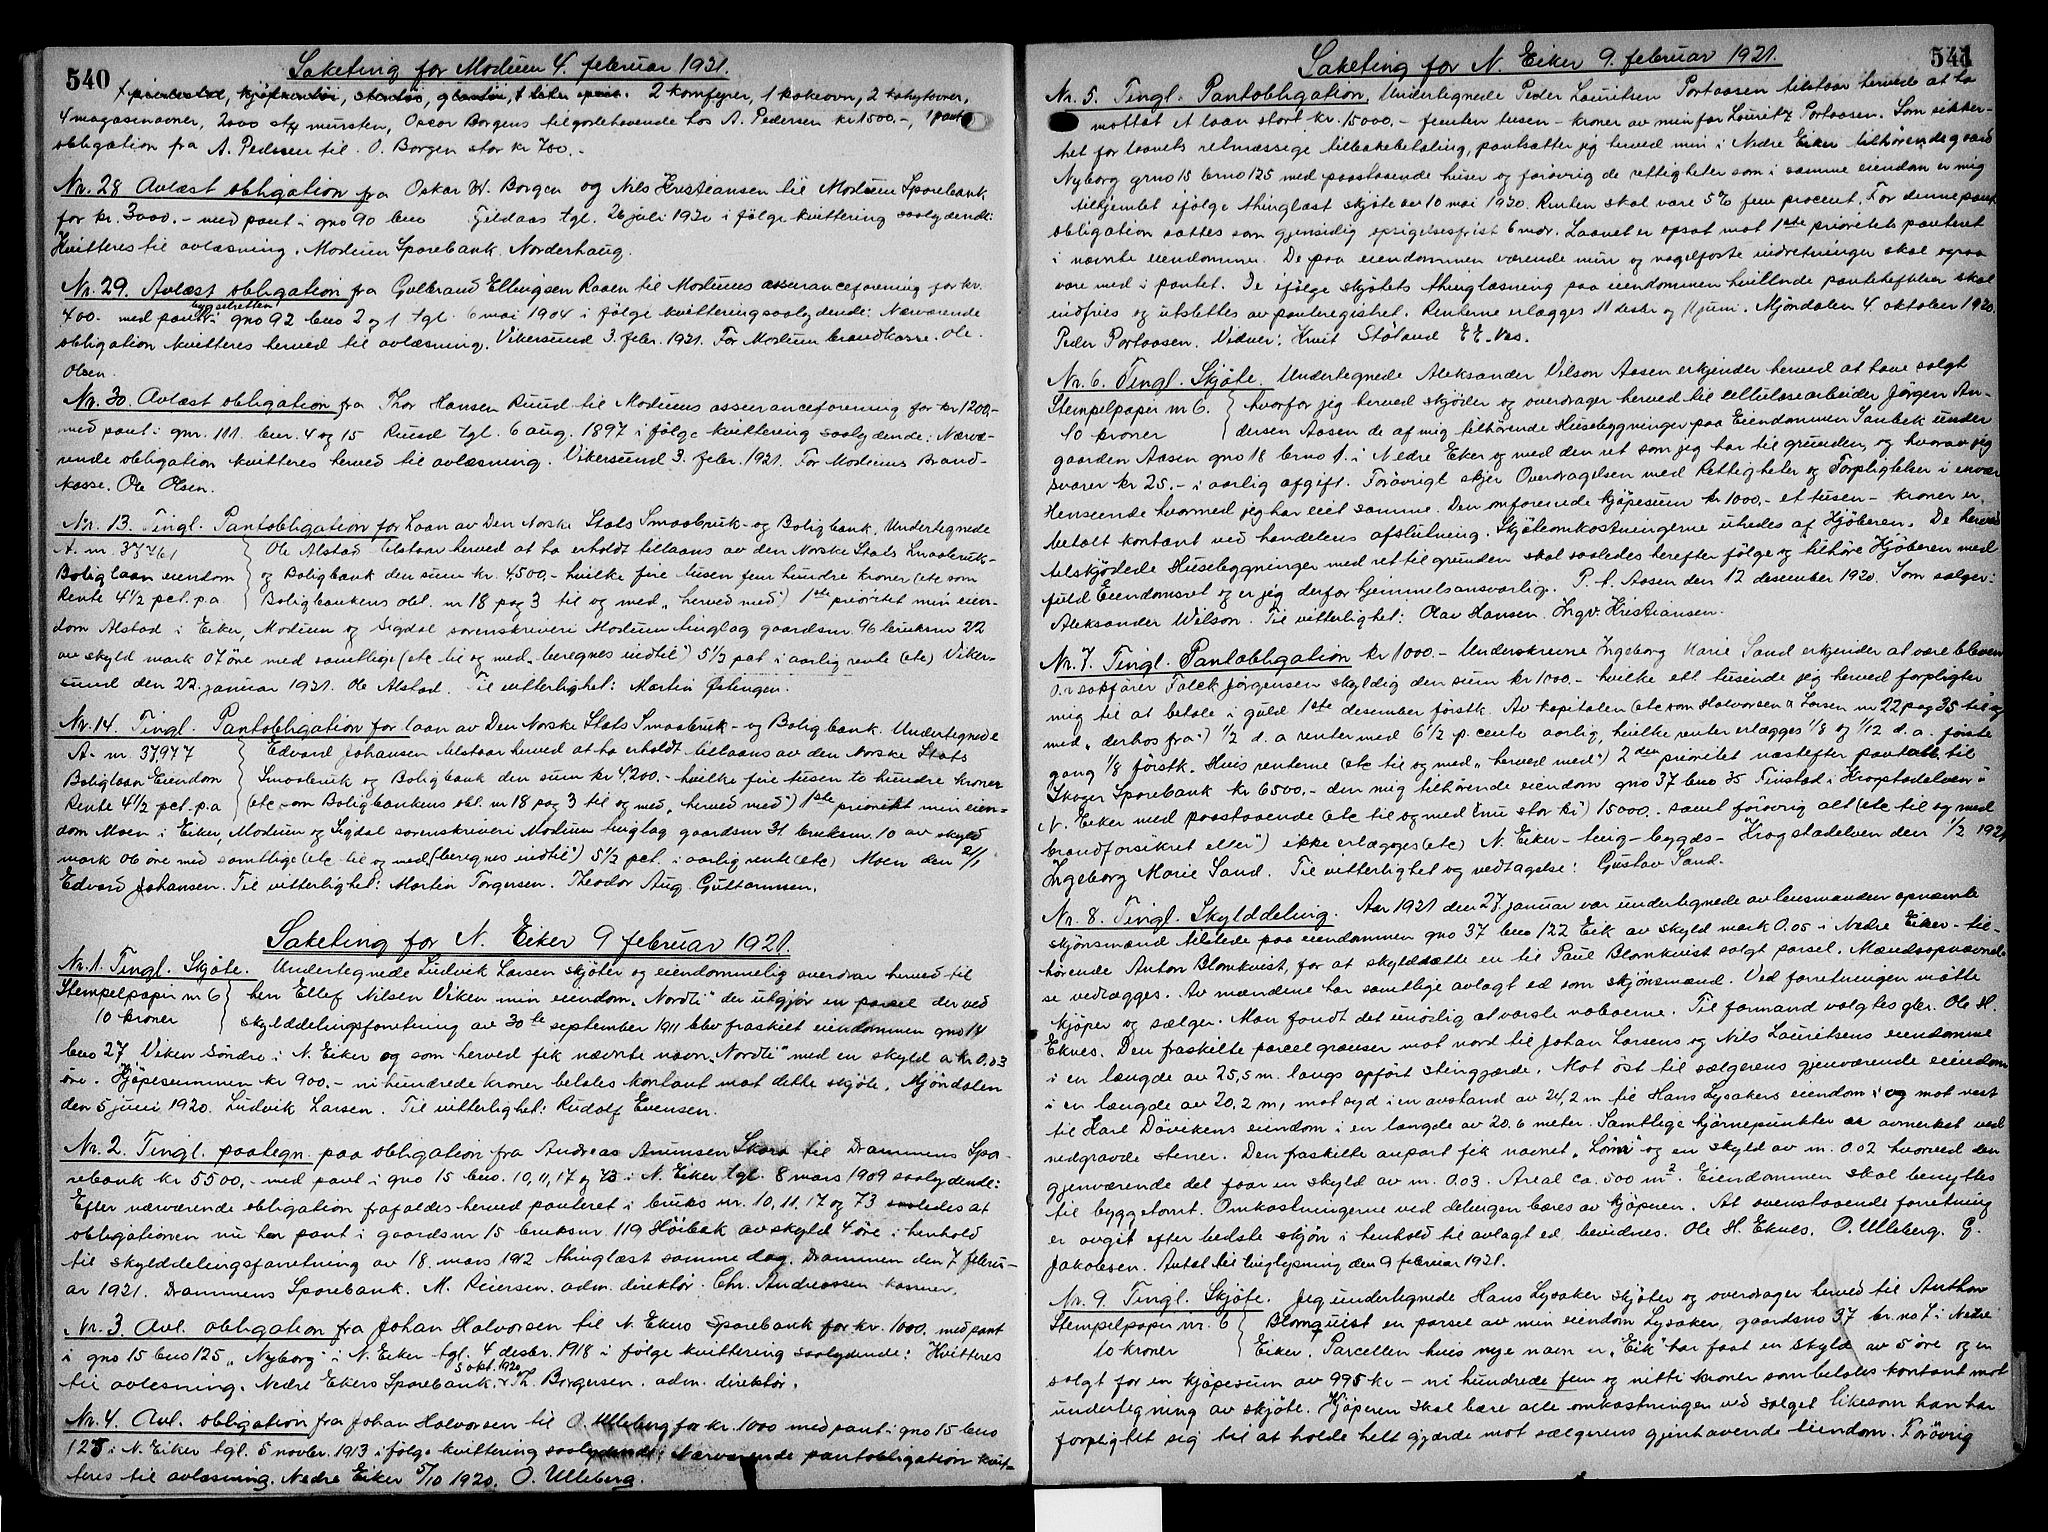 540
Saketing for Modum 4. februar 1921.
2 komfyrer, 1 kokeovn, 2 kakylovner,
4 magasinovner, 2000 stk mursten, Oscar Borgens tilgodehavende hos A. Pedersen kr 1500.-, 1 pant
obligation fra A. Pedersen til O. Borgen stor kr 700.-
Nr. 28 Avlæst obligation fra Oskar W. Borgen og Nils Kristiansen til Modum Sparebank
for kr. 3000.- med pant i gno 90 bno Gildaas tgl. 26 juli 1920 i følge kvittering saalydende:
Kvitteres til avlæsning. Modum Sparebank. Norderhaug.
Nr. 29. Avlæst obligation fra Gulbrand Ellingsen Raaen til Modums assuranceforening for kr.
bygselretten
400.- med pant i gno 92 bno 2 og 1 tgl. 6 mai 1904 i følge kvittering saalydende: Nærværende
obligation kvitteres herved til avlæsning. Vikersund 3. febr. 1921. For Modum brandkasse. Ole
Olsen.
Nr. 30. Avlæst obligation fra Thor Hansen Ruud til Modums assuranceforening for kr 1200,-
med pant i gnr. 111. bnr. 4 og 15 Ruud tgl. 6 aug. 1897 i følge kvittering saalydende: Nærvæ-
rende obligation kvitteres herved til avlæsning. Vikersund 3. febr. 1921. For Modums Brand-
kasse. Ole Olsen.
Nr. 13. Tingl. Pantobligation for Laan av Den Norske Stats Smaabruk- og Boligbank. Undertegnede
A. nr. 37461 Ole Alstad tilstaar herved at ha erholdt tillaans av den Norske Stats Smaabruk-
Boliglaan eiendom og Boligbank den sum kr. 4500.- hvilke fire tusen fem hundre kroner (etc som
Rente 4½ pct. p.a Boligbankens obl. nr 18 pag 3 til og med „herved med") 1ste prioritet min eien-
dom Alstad i Eiker, Modum og Sigdal sorenskriveri Modum tinglag gaardsnr. 96 bruksnr 22
av skyld mark 07 øre med samtlige (etc til og med „beregnes indtil") 5½ pct i aarlig rente (etc) Viker-
sund den 22. januar 1921. Ole Alstad. Til vitterlighet: Martin Østingen.
Nr. 14. Tingl. Pantobligation for laan av Den Norske Stats Smaabruk- og Boligbank. Undertegnede
A- nr. 37977 Edvard Johansen tilstaar herved at ha erholdt tillaans av den Norske Stats
Boliglaan Eiendom Smaabruk og Boligbank den sum kr 4200.- hvilke fire tusen to hundre kroner
Rente 4½ pct. p.a (etc som Boligbankens obl. nr 18 pag 3 til og med „herved med") 1ste prioritet min eien-
dom Moen i Eiker, Modum og Sigdal sorenskriveri Modum tinglag gaardsnr 31 bruksnr. 10 av skyld
mark 06 øre med samtlige (etc til og med „beregnes indtil") 5½ pct. i aarlig rente (etc) Moen den 2/1
Edvard Johansen. Til vitterlighet: Martin Torgersen. Theodor Aug. Guttormsen.
Saketing for N. Eiker 9 februar 1921.
Nr. 1. Tingl. Skjøte. Undertegnede Ludvik Larsen skjøter og eiendommelig overdrar herved til
Stempelpapir nr 6 herr Ellef Nilsen Viken min eiendom „Nordli" der utgjør en parsel der ved
10 kroner skylddelingsforretning av 30te september 1911 blev fraskilt eiendommen gno 14
bno 27 Viken Søndre i N. Eiker og som herved fik nævnte navn „Nordli" med en skyld a kr 0,03
øre. Kjøpesummen kr 900.- ni hundrede kroner betales kontant mot dette skjøte. Mjøndalen
den 5 juni 1920. Ludvik Larsen. Til vitterlighet: Rudolf Evensen.
Nr. 2. Tingl. paategn. paa obligation fra Andreas Animsen Skara til Drammens Spa-
rebank kr 5500,- med pant i gno 15 bno. 10, 11, 17 og 73 i N. Eiker tgl. 8 mars 1909 saalydende:
Efter nærværende obligation frafaldes herved panteret i bruks nr. 10, 11, 17 og 73 saaledes at
obligationen nu har pant i gaardsnr 15 bruksnr. 119 Høibak av skyld 4 øre i henhold
til skylddelingsforretning av 18. mars 1912 thinglæst samme dag. Drammen den 7 febru-
ar 1921. Drammens Sparebank. M. Reiersen. adm. direktør. Chr. Andreassen kasserer.
Nr. 3. Avl. obligation fra Johan Halvorsen til N. Ekers Sparebank for kr. 1000. med pant
i gno 15 bno 125 „Nyborg" i N. Eiker tgl. 4 desbr. 1918 i følge kvittering saalydende: Kvitteres
5 okt. 1920
til avlesning. Nedre Ekers Sparebank. Th. Borgersen. adm. direktør.
Nr. 4. Avl. obligation fra Johan Halvorsen til O. Ulleberg for kr. 1000 med pant i gno 15 bno
125 i N. Eiker tgl. 5 novbr. 1913 i følge kvittering saalydende: Nærværende pantobligation kvit-
teres til avlæsning. Nedre Eiker 5/10 1920. O. Ulleberg.
541
Saketing for N. Eiker 9. februar 1921.
Nr. 5. Tingl. Pantobligation. Undertegnede Peder Lauritsen Portaasen tilstaar herved at ha
mottat et laan stort kr. 15000.- femten tusen - kroner av min far Lauritz Portaasen. Som sikker-
het for laanets retmæssige tilbakebetaling, pantsætter jeg herved min i Nedre Eiker tilhørende gaard
Nyborg grno 15 brno 125 med paastaaende huser og forøvrig de rettigheter som i samme eiendom er mig
tilhjemlet ifølge thinglæst skjøte av 10 mai 1920. Renten skal være 5% fem procent. For denne pant-
obligation sættes som gjensidig opsigelsesfrist 6 mdr. Laanet er opsat mot 1ste prioritets panteret
i nævnte eiendomme. De paa eiendommen værende mur og nagelfaste indretninger skal ogsaa
være med i pantet. De ifølge skjøtets thinglæsning paa eiendommen hvilende pantehefftelser skal
indfries og utslettes av panteregistret. Renterne erlægges 11 desbr og 11 juni. Mjøndalen 4 oktober 1920.
Peder Portaasen. Vidner: Knut Støland E E. Ness.
Nr. 6. Tingl. Skjøte. Undertegnede Aleksander Vilson Aasen erkjender herved at have solgt
Stempelpapir nr 6. hvorfor jeg herved skjøder og overdrager herved til cellulosearbeider Jørgen An-
10 kroner dersen Aasen de af mig tilhørende Husebygninger paa Eiendommen Sanbek under
gaarden Aasen gno 18 brno 1. i Nedre Eker og med den ret som jeg har til grunden, og hvorav jeg
svarer kr 25.- i aarlig afgift. Forøvrigt skjer Overdragelsen med Rettigheter og Forpligtelser i enver
Henseende hvormed jeg har eiet samme. Den omforenede kjøpesum kr 1000,- et tusen - kroner er
betalt kontant ved handelens afslutning. Skjøteomkostningerne utredes af Kjøberen. De herved
tilskjødede Husebygninger med ret til grunden skal saaledes herefter følge og tilhøre Kjøberen med
fuld Eiendomsret og er jeg derfor hjemmelsansvarlig. P. t. Aasen den 12 desember 1920. Som sælger:
Aleksander Wilson. Til vitterlighet: Olav Hansen. Ingv. Kristiansen.
Nr. 7. Tingl. Pantobligation kr 1000.- Underskrevne Ingeborg Marie Sand erkjender at være bleven
o.r.sakfører Falck Jørgensen skyldig den sum kr 1000.- hvilke ett tusinde jeg herved forpligter
mig til at betale i guld 1ste desember førstk. Av kapitalen (etc som Halvorsen & Larsen nr 22 pag 35 til og
med „derhos fra") ½ d. a renter med 6½ p. cento aarlig hvilke renter erlægges 1/8 og 1/12 d. a. første
gang 1/8 førstk. Hvis renterne (etc til og med „herved med") 2den prioritet næstefter pantobl. til
Skoger Sparebank kr 6500,- den mig tilhørende eiendom gno 37 bno 35 Finstad i Krogstadelven i
N. Eker med paastaaende (etc til og med Enu stor kr) 15000. samt forøvrig alt (etc til og med
brandforsikret eller") ikke erlægges (etc) N. Eiker - ting - bygds - Krogstadelven den 1/2 1921
Ingeborg Marie Sand. Til vitterlighet og vedtagelse: Gustav Sand.
Nr. 8. Tingl. Skylddeling. Aar 1921 den 27 januar var undertegnede av lensmanden opnævnte
skjønsmænd tilstede paa eiendommen gno 37 bno 122 Eik av skyld mark 0.05 i Nedre Eiker - til-
hørende Anton Blomkvist, for at skyldsætte en til Paul Blomkvist solgt parsel. Mændsopnævnel-
se vedlægges. Av mændene har samtlige avlagt ed som skjønsmænd. Ved forretningen møtte
kjøper og sælger. Man fandt det unødig at varsle naboerne. Til formand valgtes gbr. Ole H.
Eknes. Den fraskilte parcel grænser mot nord til Johan Larsens og Nils Lauritsens eiendomme
i en længde av 25,5 m. langs opført stengjærde. Mot øst til sælgerens gjenværende eiendom
i en længde av 20,2 m, mot syd i en avstand av 24,2 m til Hans Lysakers eiendom; og mot vest
til Karl Døvikens eiendom i en længde av 20.6 meter. Samtlige hjørnepunkter er avmerket ved
nedgravde stener. Den fraskilte anpart fik navnet „Lømi" og en skyld av m. 0.02 hvorved den
gjenværende del faar en skyld av m. 0.03. Areal ca. 500 m². Eiendommen skal benyttes
til byggetomt. Omkostningerne ved delingen bæres av kjøperen. At ovenstaaende forretning
er avgit efter bedste skjøn i henhold til avlagt ed, bevidnes. Ole H. Eknes. O. Ulleberg. G.
Jakobsen. Antat til tinglysning den 9 februar 1921.
Nr. 9. Tingl. Skjøte. Jeg undertegnede Hans Lysaker skjøter og overdrager herved til Anthon
Stempelpapir nr. 6 Blomquist en parsel av min eiendom Lysaker, gaardsno 37 br. no 7 i Nedre
10 kroner Eiker. Parcellen hvis nye navn er „Eik" har faat en skyld av 5 øre og er
solgt for en kjøpesum av 995 kr - ni hundrede fem og nitti kroner som betales kontant mot
undertegning av skjøte. Kjøperen skal bære alle omkostninger ved salget likesom han har
forpligtet sig til at holde helt gjærde mot sælgerens gjenhavende eiendom. Forøvrig